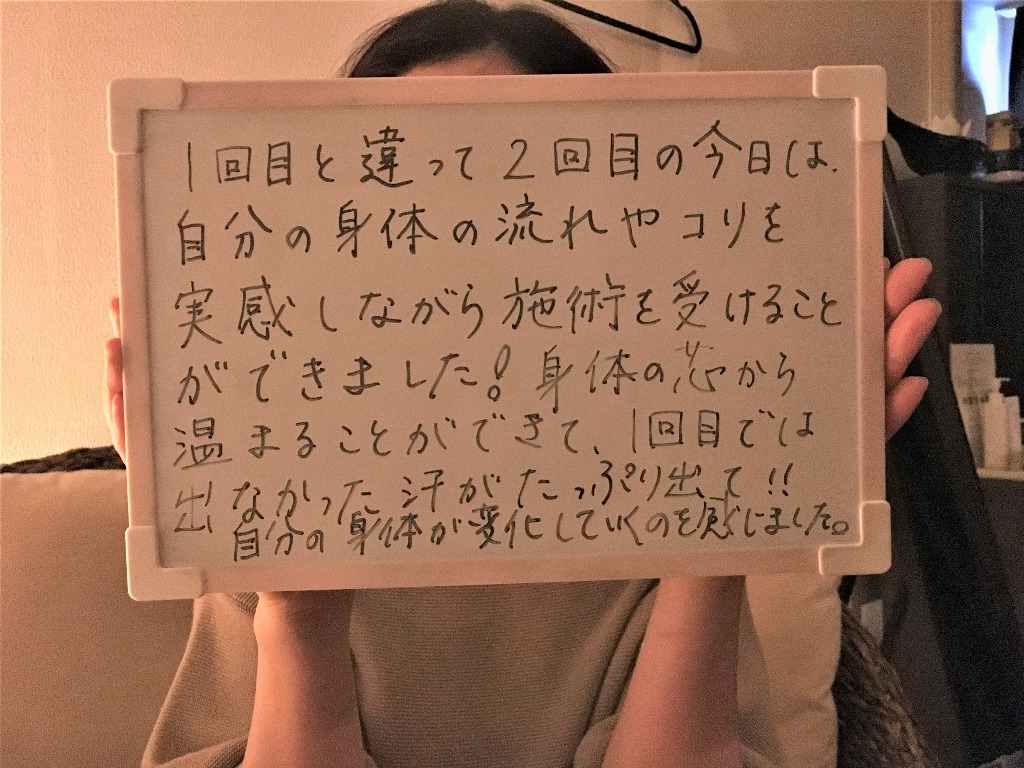 1回目と違って2回目の今日は、
自分の身体の流れやコリを
実感しながら施術を受けること
ができました!身体の芯から
温まることができて、1回目では
出なかった汗がたっぷり出て!!
自分の身体が変化していくのを感じました。